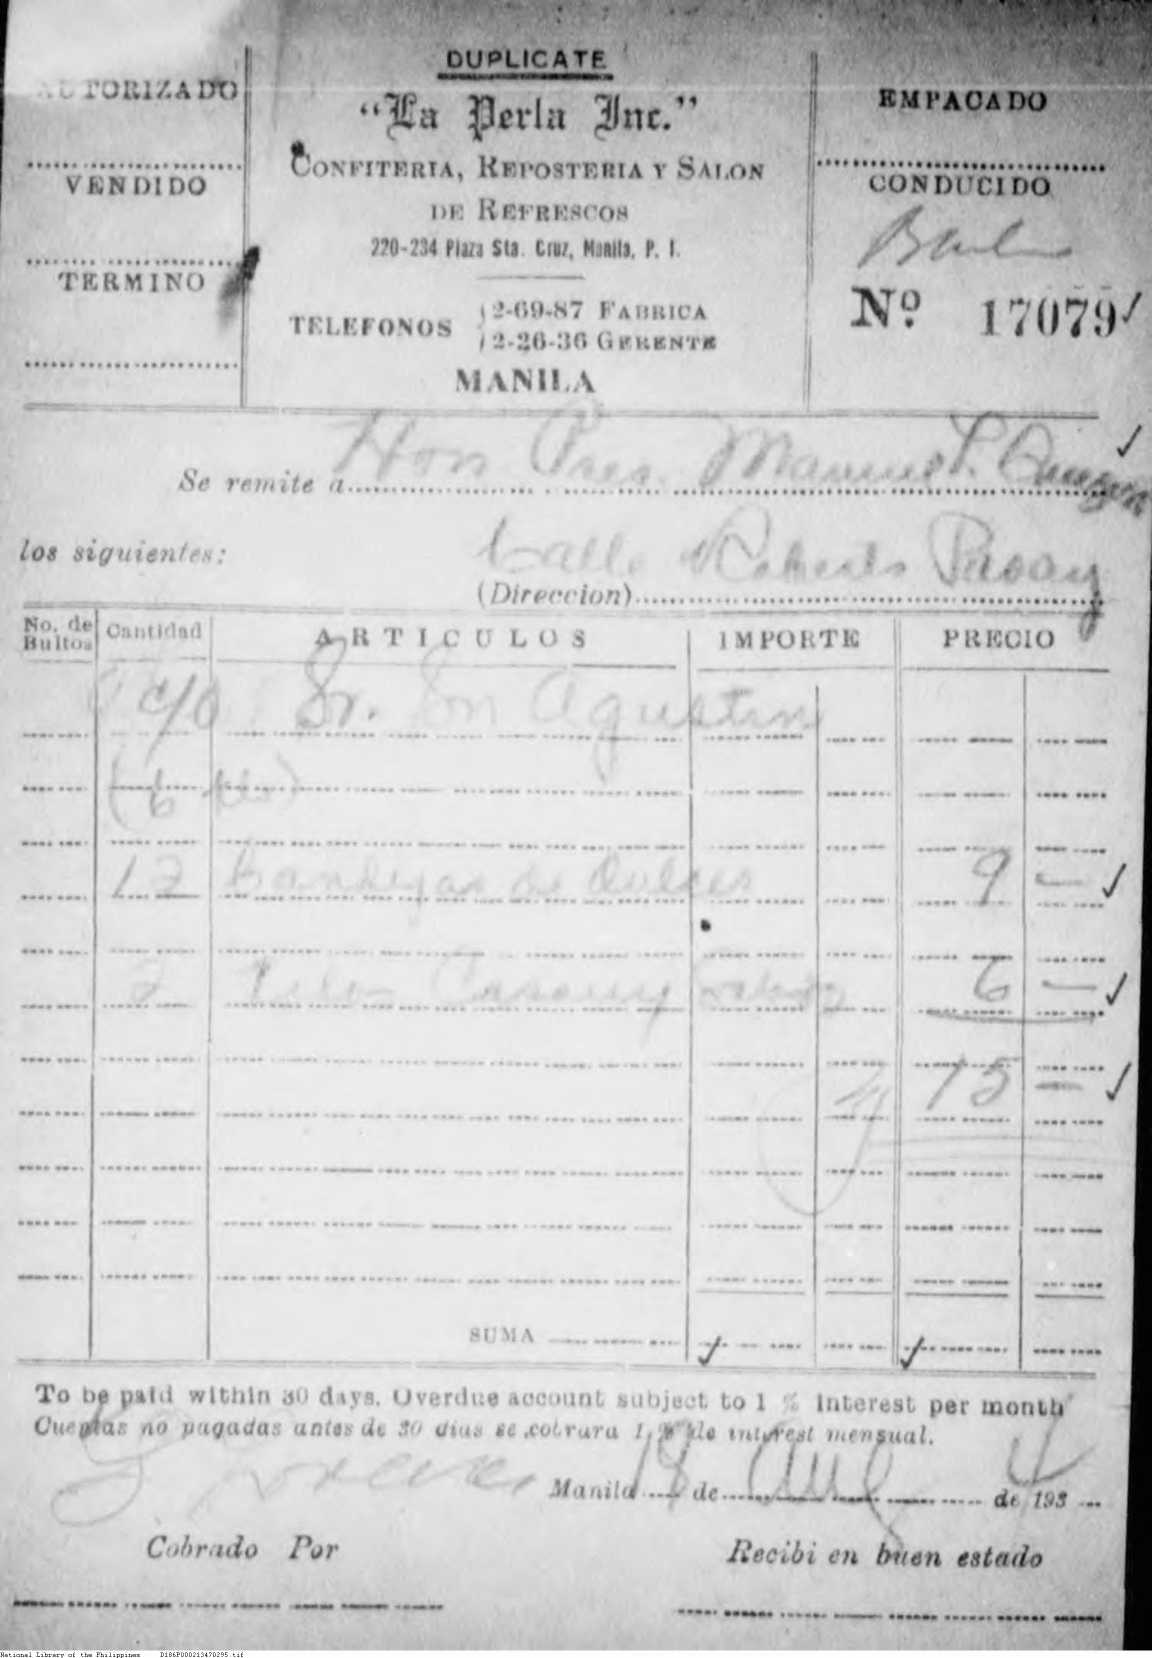 DUPLICATE
AUTORIZADO
VENDIDO
TERMINO
"La Perla Inc."
CONFITERIA, REPOSTERIA Y SALON
DE REFRESCOS
220-234 Plaza Sta. Cruz, Manila, P. I.
TELEFONOS
2-69-87 FABRICA
2-26-36 GERENTE
MANILA
EMPACADO
CONDUCIDO
Nº 17079
Se remite a Hon Pres. Manuel L. Quezon
los siguientes:
Calle Roberts Pasay
(Direccion)
No. de Bultos Cantidad ARTICULOS IMPORTE PRECIO
c/o Sr. San Agustin
(6
12 Bandejas de Dulces 9 —
2 6 —
15 —
SUMA
To be paid within 30 days. Overdue account subject to 1 % interest per month
Cuentas no pagadas antes de 30 dias se cobrara 1 % de interest mensual.
Manila 18 de Aug de 193
Cobrado Por
Recibi en buen estado
National Library of the Philippines D186P000213470295.tif